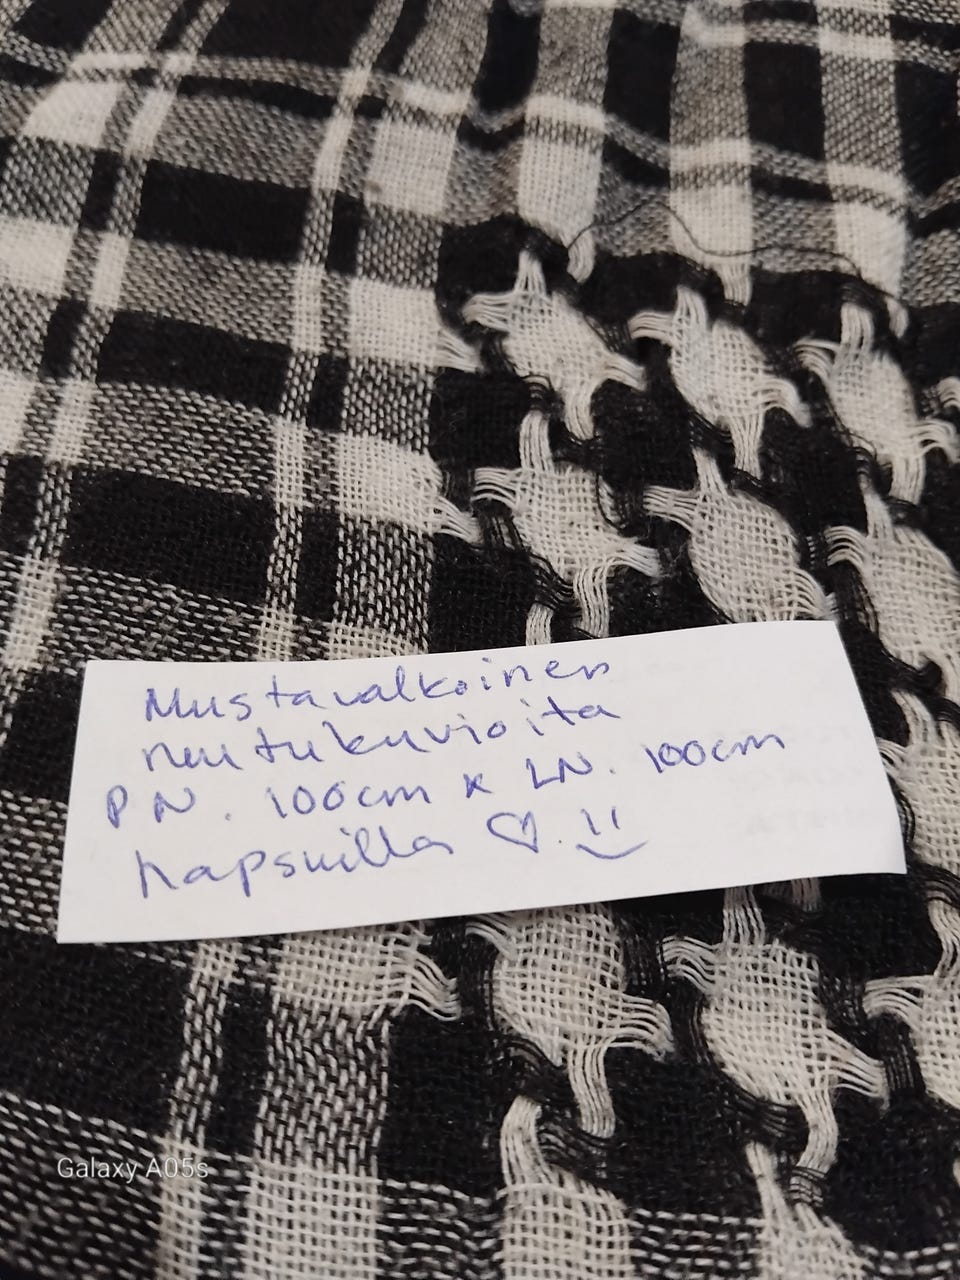 Mustavalkoinen
ruutukuvioita
PN. 100cm x LN. 100cm
hapsuilla ♡. !!
Galaxy A05s